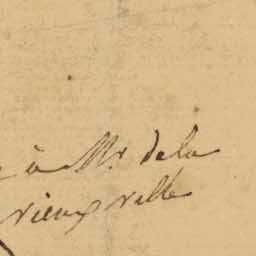 à Mr dela
vieux ville